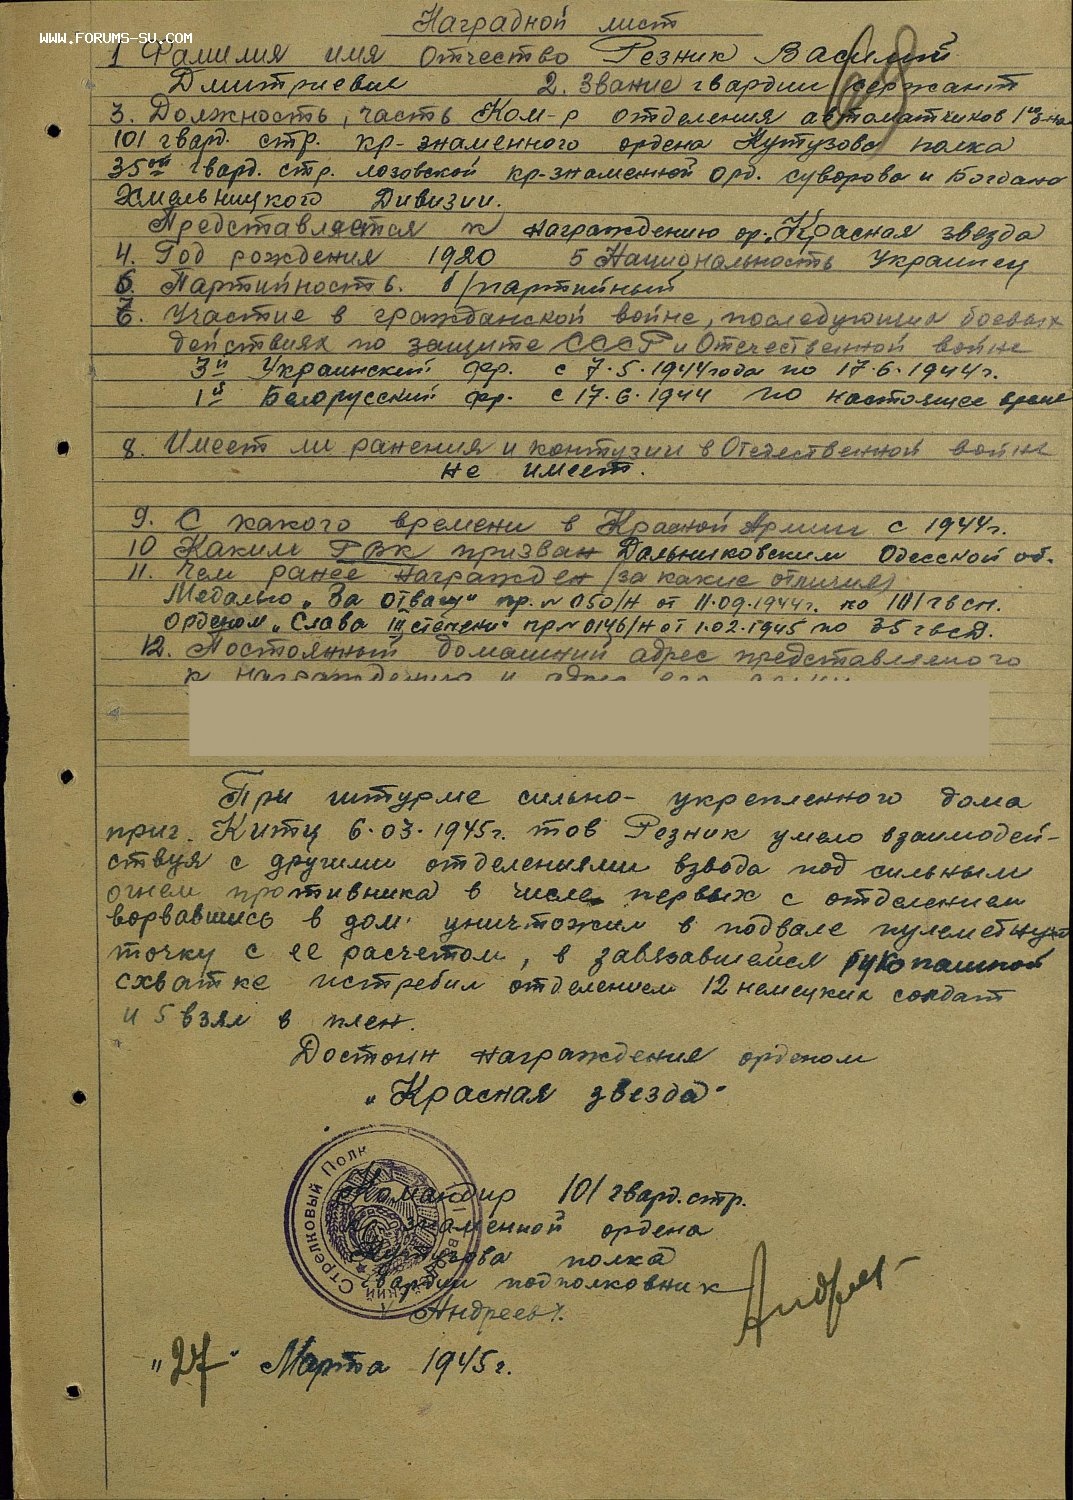 Наградной лист
WWW.FORUMS-SU.COM
1 Фамилия имя отчество Резник Василий
Дмитриевич 2. Звание гвардии сержант
3. Должность, часть Ком-р отделения автоматчиков 1го
101 гвард. стр. кр-знаменного ордена Кутузова полка
35ой гвард. стр. лозовской кр-знаменной орд. суворова и Богдана
Хмельницкого Дивизии.
Представляется к награждению ор. „Красная звезда
4. Год рождения 1920 5 Национальность Украинец
6. Партийность. б/партийный
7. Участие в гражданской войне, последующих боевых
действиях по защите СССР и Отечественной войне
3й Украинский фр. с 7.5.1944 года по 17.6.1944г.
1й Белорусский фр. с 17.6.1944 по настоящее время
8. Имеет ли ранения и контузии в Отечественной войне
не имеет.
9. С какого времени в Красной Армии с 1944г.
10 Каким РВК призван Дальниковским Одесской об.
11. Чем ранее награжден (за какие отличия)
Медалью „За отвагу" пр. № 050/н от 11.09.1944г. по 101 гвсп.
Орденом „Слава III степени" пр № 014б/н от 1.02.1945 по 35 гвсд.
12. Постоянный домашний адрес представляемого
к награждению и адрес его
При штурме сильно- укрепленного дома
приг. Китц 6.03.1945г. тов Резник умело взаимодей-
ствуя с другими отделениями взвода под сильным
огнем противника в числе первых с отделением
ворвавшись в дом уничтожил в подвале пулеметную
точку с ее расчетом, в завязавшейся рукопашной
схватке истребил отделением 12 немецких солдат
и 5 взял в плен.
Достоин награждения орденом
„Красная звезда"
Стрелковый Полк
Командир 101 гвард. стр.
кр знаменной ордена
Кутузова полка
Гвардии подполковник
Андреев
„27" Марта 1945г.